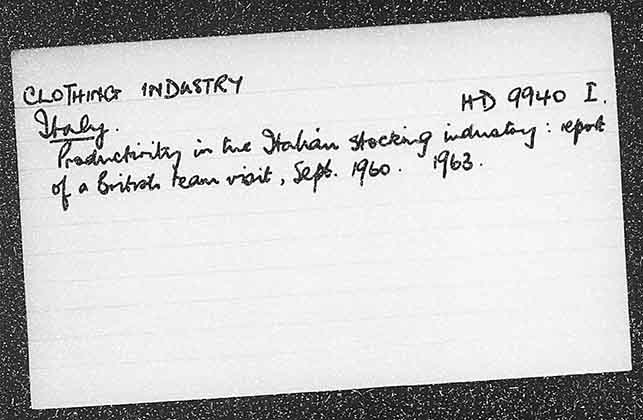 CLOTHING INDUSTRY
HD 9940 I.
Italy.
Productivity in the Italian stocking industry: report
of a British team visit, Sept. 1960. 1963.